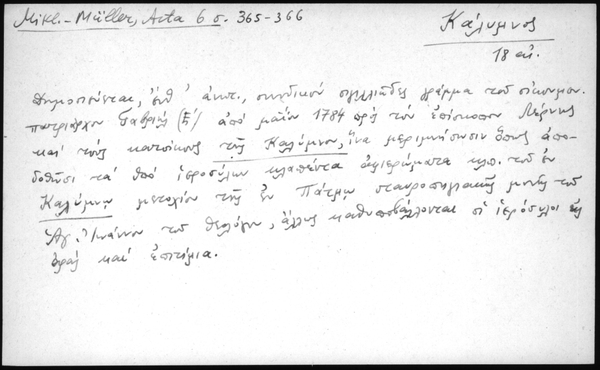 Mikl.-Müller, Acta 6 σ. 365-366
Κάλυμνος
18 αἰ.
Δημοσιεύεται, ἔνθ' ἀνωτ., συνοδικὸν σιγιλλιῶδες γράμμα τοῦ οἰκουμεν.
πατριάρχου Γαβριὴλ ἀπὸ μαΐου 1784 πρὸς τὸν ἐπίσκοπον Λέρνης
καὶ τοὺς κατοίκους τῆς Καλύμνου, ἵνα μεριμνήσωσιν ὅπως ἀπο-
δοθῶσι τὰ ὑπὸ ἱεροσύλων κλαπέντα ἀφιερώματα κλπ. τοῦ ἐν
Καλύμνῳ μετοχίου τῆς ἐν Πάτμῳ σταυροπηγιακῆς μονῆς τοῦ
Ἁγ. Ἰωάννου τοῦ Θεολόγου, ἄλλως καθυποβάλλονται οἱ ἱερόσυλοι εἰς
ἀρὰς καὶ ἐπιτίμια.